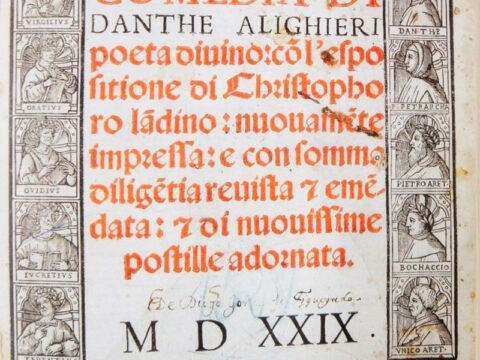 COMEDIA DI
DANTHE ALIGHIERI
poeta diuino: cõ l'espo
sitione di Christopho
ro lãdino: nuouamẽte
impressa: e con somma
diligẽtia reuista ⁊ emẽ
data: ⁊ di nuouissime
postille adornata.
De
M D XXIX.
VIRGILIVS
ORATIVS
OVIDIVS
LVCRETIVS
TERENTIVS
DANTHE
P PETRARCHA
PIETRO ARET.
BOCHACCIO
VNICO ARET.